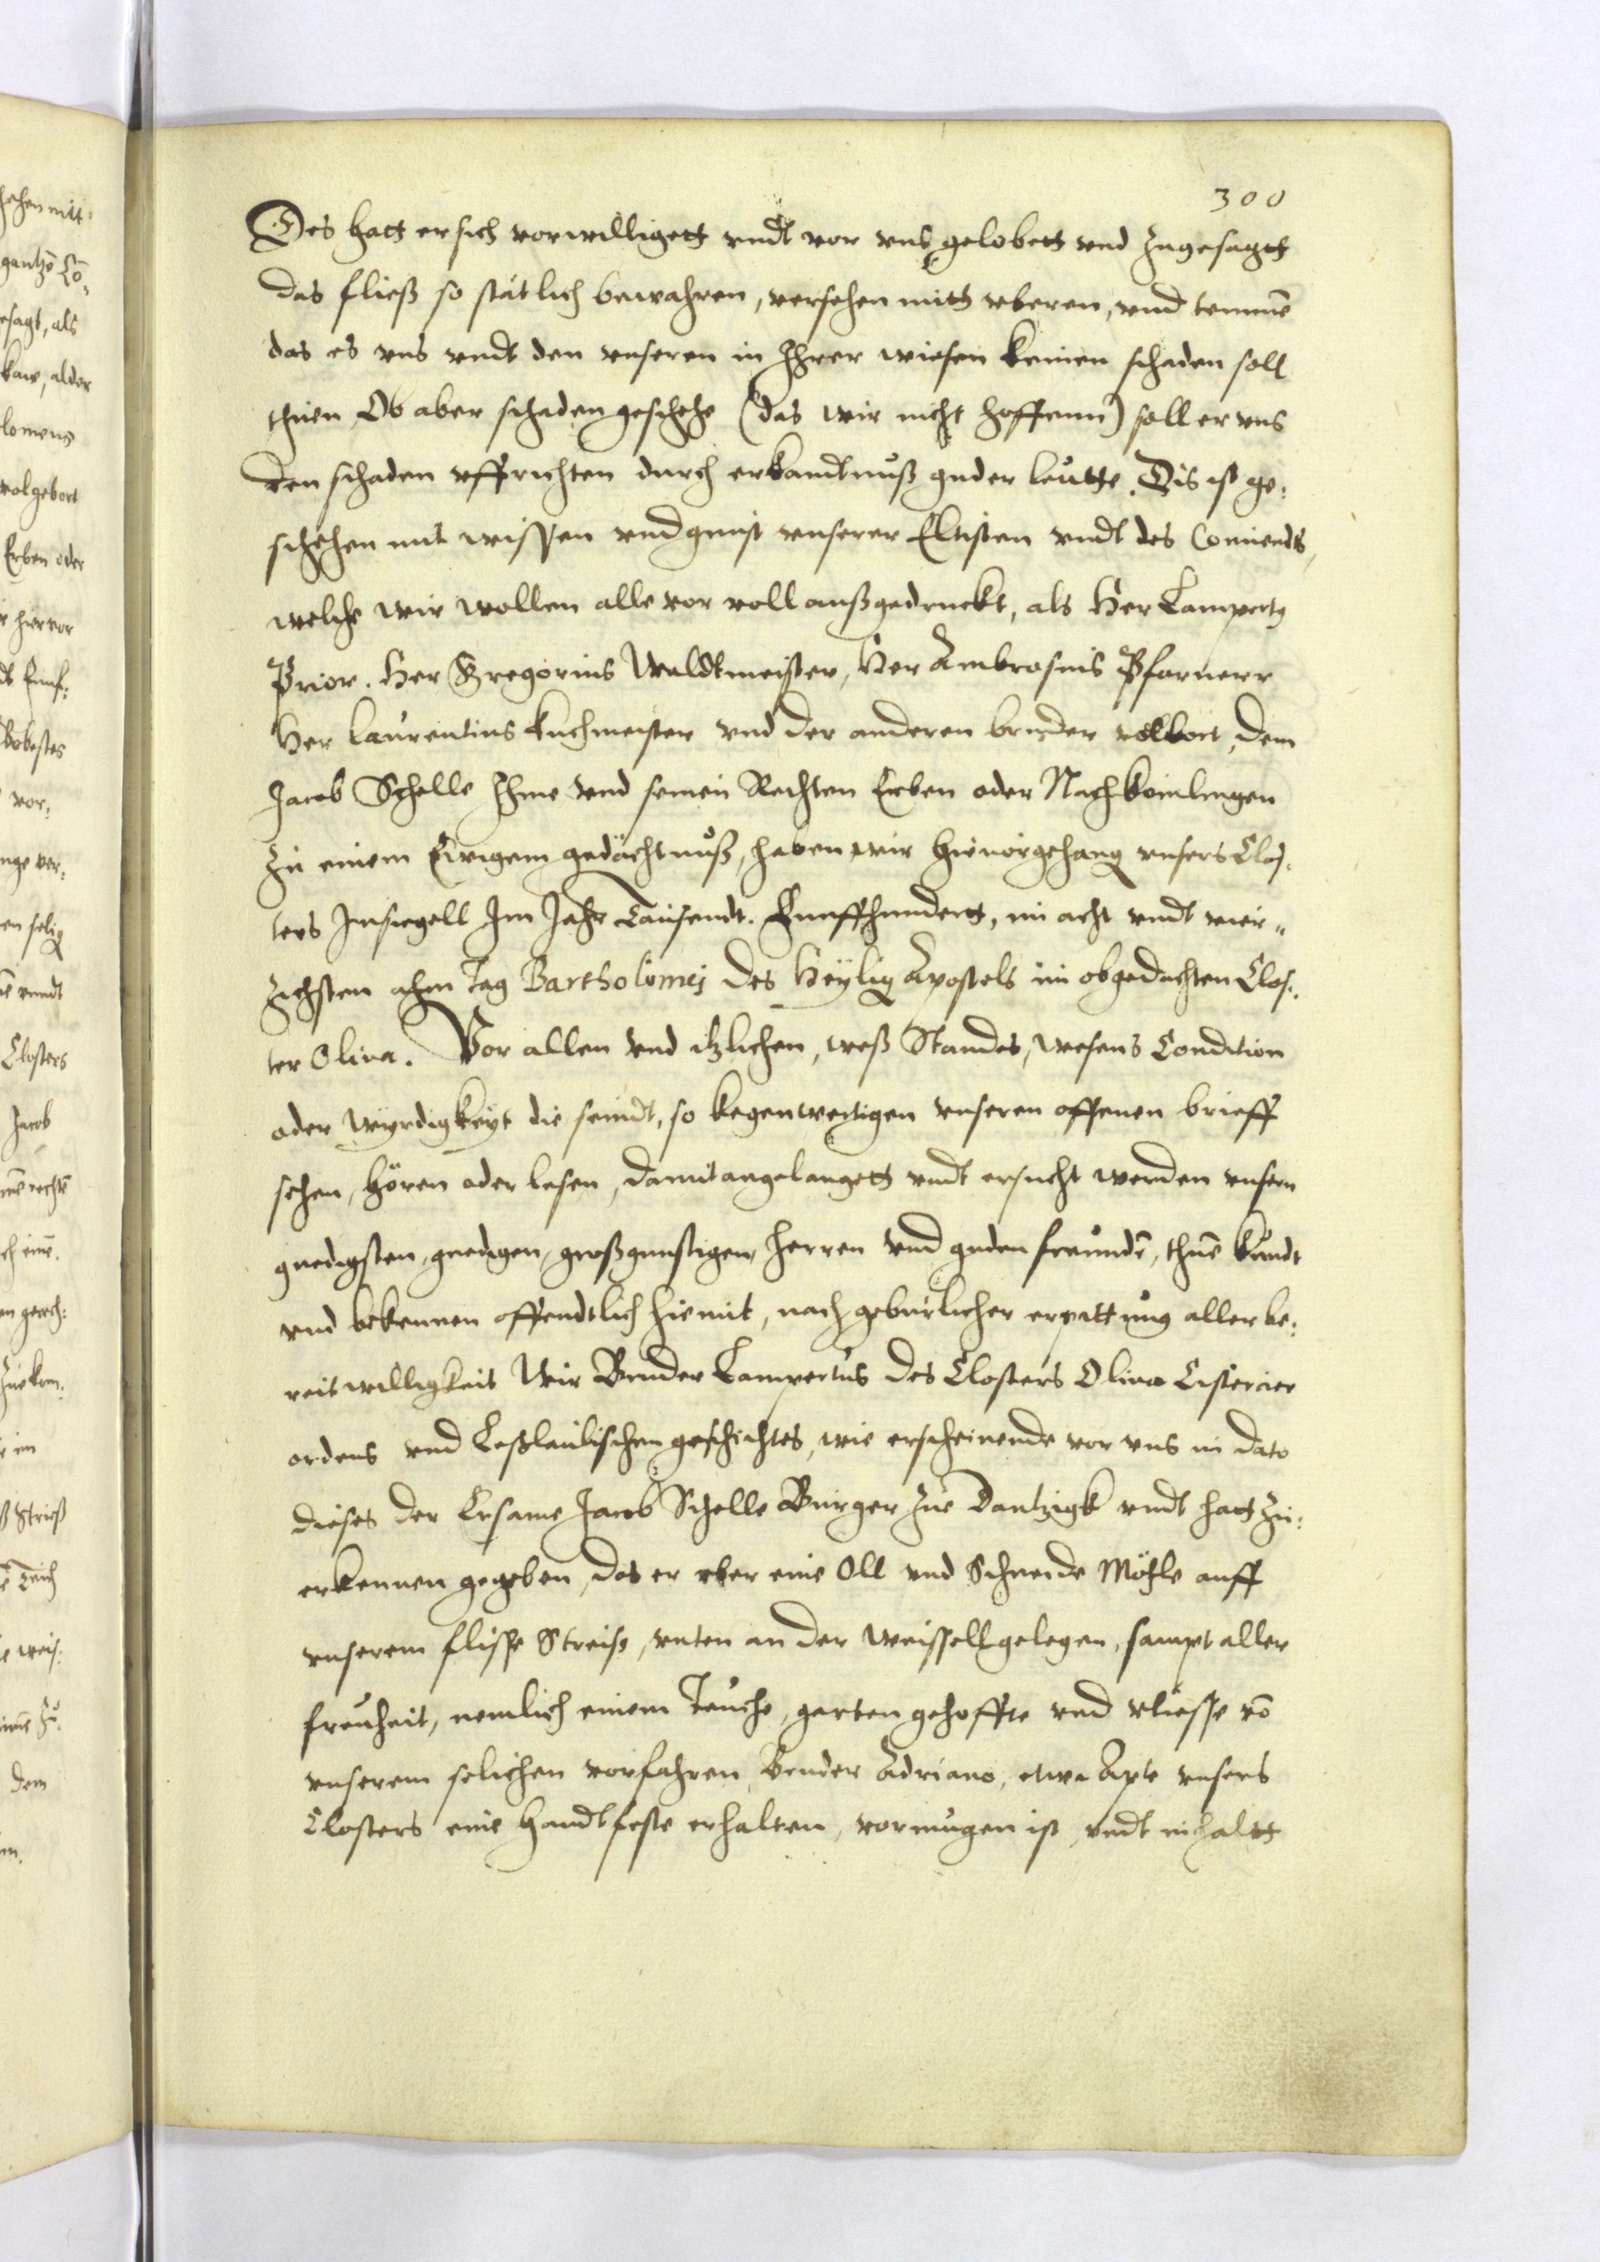 300
Des hatt er sich vorwilligett vndt vor vns gelobett vnd zugesagtt
das fließ so stätlich bewahren, versehen mitt vberen, vnd temmē
das es vns vndt den vnseren in Ihrer wiesen keinen schaden soll
thuen Ob aber schaden geschehe (das wir nicht hoffenn) soll er vns
den schaden vffrichten durch erkandtnuß guder leutte. Dis ist ge:
schehen mit wissen vnd gunst vnserer Eltisten vndt des Conuendts,
welche wir wollen alle vor voll außgedruckt, als Her Lampertg
Prior. Her Gregorius Waldtmeister, Her Ambrosius Pfarnerr
Her Laurentius Kuchmeister vnd der anderen bruder vollbort, dem
Jacob Schelle Ihme vnd seinen Rechten Erben oder Nachkömlingen
zu einem Ewigem gedächtnuß, haben wir hieuorgehang vnsers Clos,
ters Insiegell Im Jahr Tausendt. Funffhundertt, im acht vndt vier„
zichsten ahm Tag Bartholomej des Heylig Apostels im obgedachten Clos:
ter Oliva. Vor allen vnd itzlichen, weß Standes, wesens Condition
oder Wyrdigkeyt die seindt, so kegenwertigen vnseren offenen brieff
sehen, hören oder lesen, damit angelangett vndt ersucht werden vnsern
gnedigsten, gnedigen, großgunstigen, herren vnd guden freundē, thuē kundt
vnd bekennen offendtlich hiemit, nach geburlicher erpittung aller be:
reitwilligkeit Wir Bruder Lampertus des Closters Oliva Cistercier
ordens vnd Leßlauischen geschichtes, wie erscheinende vor vns in dato
dieses der Ersame Jacob Schelle Burger zue Dantzigk vndt hatt zu:
erkennen gegeben, das er vber eine Oll vnd Schneide Möhle auff
vnserem flisse Streiß, vnten an der Weissell gelegen, sampt aller
freuheit, nemlich einem Teuche, garten gehoffte vnd vliesse vō
vnserem selichen vorfahren, Bruder Adriano, etwa Apte vnsers
Closters eine Handtfeste erhalten, vormugen ist vndt inhaltt